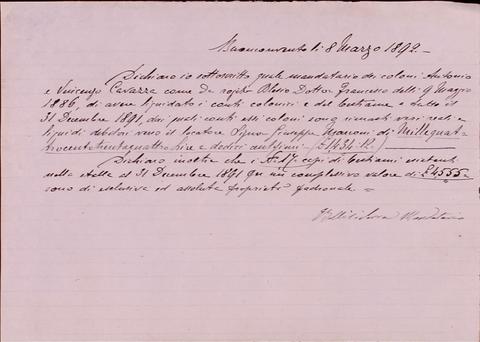 Buonconvento li 8 Marzo 1892.
Dichiaro io sottoscritto quale mandatario dei coloni Antonio
e Vincenzo Cavazza come da rogito Dottor Francesco delli 9 Maggio
1886, di avere liquidato i conti colonici e del bestiame a tutto il
31 Dicembre 1891, dai quali conti essi coloni sono rimasti veri reali e
liquidi debitori verso il locatore Signor Giuseppe Marconi di Millequat-
trocentotrentaquattro lire e dodici centesimi (£1434.12.)
Dichiaro inoltre che i N. 17 capi di bestiami esistenti
nelle stalle al 31 Dicembre 1891 per un complessivo valore di £4555
sono di esclusiva ed assoluta proprietà padronale =